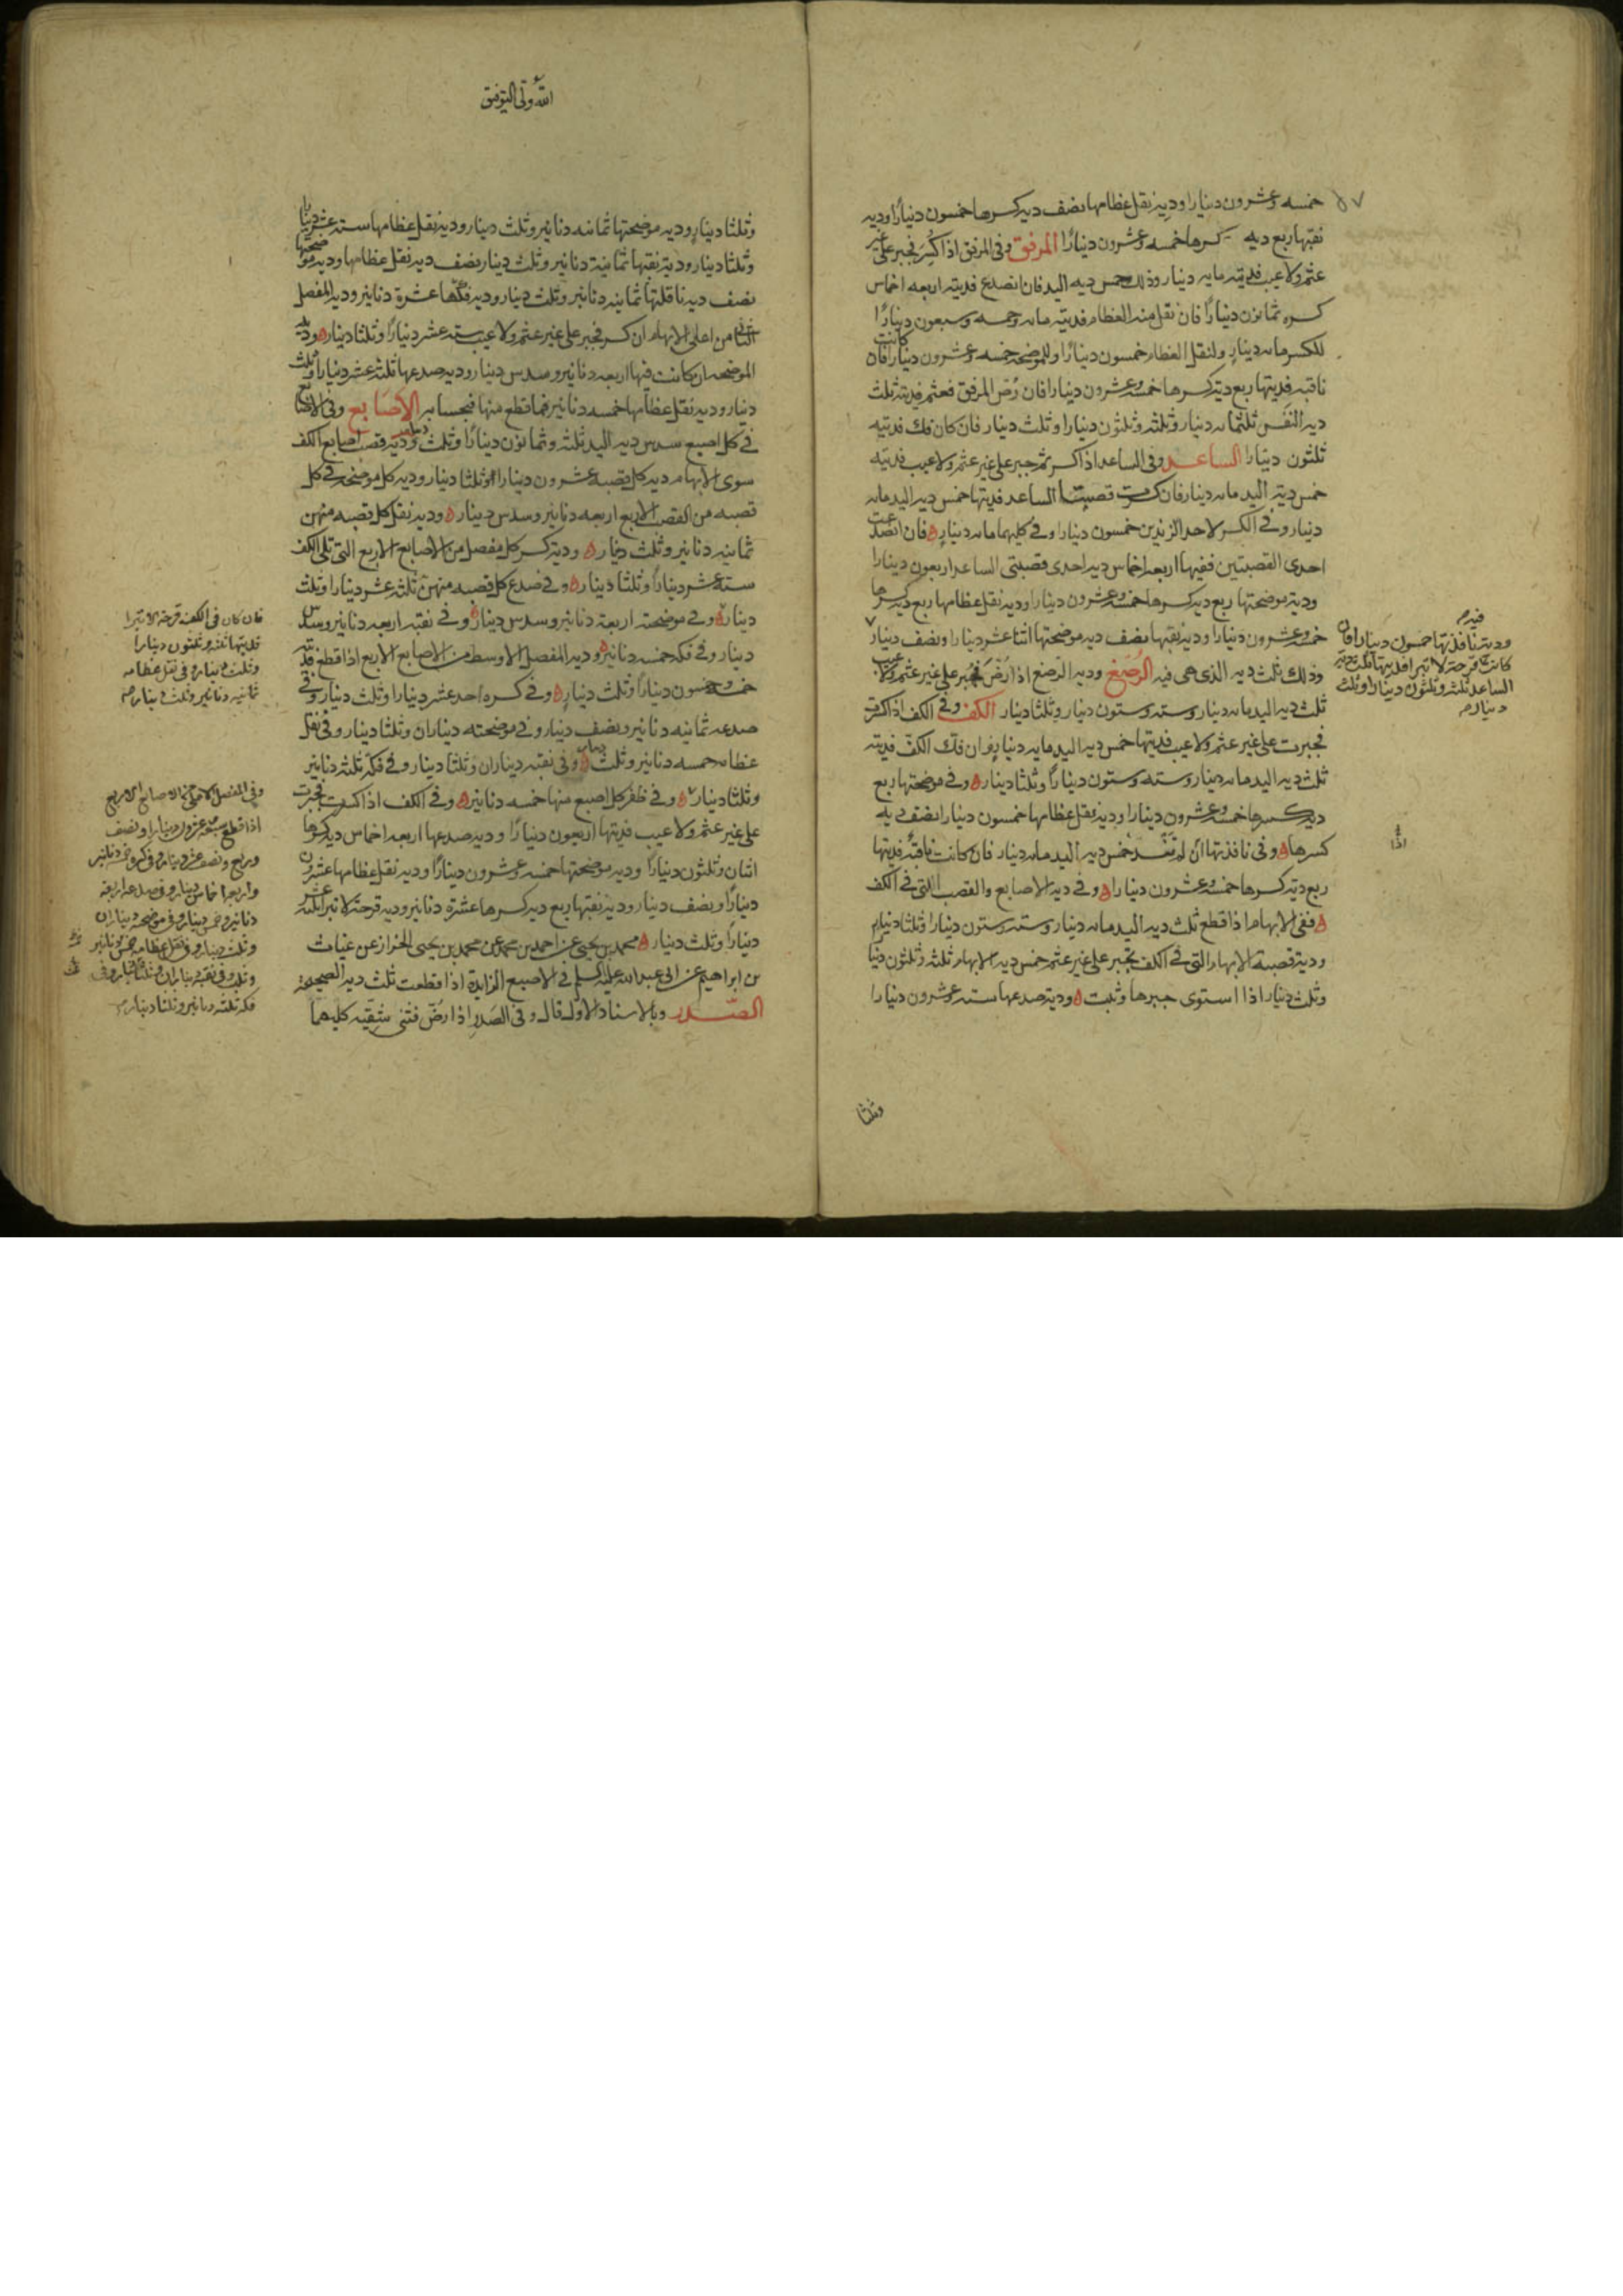 خمسه وعشرون دينارا ودية نقل عظامها نصف دية كسرها خمسون دينارا ودية
نقبها ربع دية كسرها خمسه وعشرون دينارا المرفق وفى المرفق اذا كُسِرَ فجبر على غير
عثم ولا عيب فديته مايه دينار وذلك خمس ديه اليد فان انصدع فديته اربعه اخماس
كسره ثمانون دينارًا فان نقل منه العظام فديته مايه وخمسه وسبعون دينارًا
للكسر مايه دينار ولنقل العظام خمسون دينارًا وللموضحه خمسه وعشرون دينارا فان كانت
ناقبه فديتها ربع دية كسرها خمسه وعشرون دينارا فان رُضّ المرفق فعثم فديته ثلث
دية النفس ثلثمايه دينار وثلثه وثلثون دينارا وثلث دينار فان كان فك فديته
ثلثون دينارا الساعد وفى الساعد اذا كسر ثم جبر على غير عثم ولا عيب فديته
خمس دية اليد مايه دينار فان كسرت قصبتا الساعد فديتها خمس دية اليد مايه
دينار وفى الكسر لاحد الزندين خمسون دينارا وفى كليهما مايه دينار ه فان انصدعت
احدى القصبتين ففيها اربعه اخماس دية احدى قصبتى الساعد اربعون دينارا
ودية موضحتها ربع دية كسرها خمسه وعشرون دينارا ودية نقل عظامها ربع دية كسرها
خمسه وعشرون دينارا ودية نقبها نصف دية موضحتها اثنا عشر دينارا ونصف دينار
ودية نافذتها خمسون دينارا فان
كانت قرحة لا تبرا فديتها ثلث دية
الساعد ثلثه وثلثون دينارا وثلث
دينار صح
وذلك ثلث ديه الذى هى فيه الرُصغ ودية الرصغ اذا رُضّ فجبر على غير عثم ولا عيب
ثلث دية اليد مايه دينار وسته وستون دينار وثلثا دينار الكف وفى الكف اذا كسرت
فجبرت على غير عثم ولا عيب فديتها خمس دية اليد مايه دينار وان فك الكفّ فديته
ثلث دية اليد مايه دينار وسته وستون دينارًا وثلثا دينار ه وفى موضحتها ربع
دية كسرها خمسه وعشرون دينارا ودية نقل عظامها خمسون دينارا نصف ديه
كسرها ه وفى نافذتها ان لم تنسد خمس دية اليد مايه دينار فان كانت ناقبه فديتها
ربع دية كسرها خمسه وعشرون دينارا ه وفى دية الاصابع والقصب التى فى الكف
ه ففى الابهام اذا قطع ثلث دية اليد مايه دينار وسته وستون دينارا وثلثا دينار
ودية قصبة الابهام التى فى الكف تجبر على غير عثم خمس دية الابهام ثلثه وثلثون دينا
وثلث دينار اذا استوى جبرها وثبت ه ودية صدعها سته وعشرون دينارا
وثلثا
الله ولى التوفيق
وثلثا دينار ودية موضحتها ثمانيه دنانير وثلث دينار ودية نقل عظامها سته عشر دينارا
وثلثا دينار ودية نقبها ثمانية دنانير وثلث دينار نصف دية نقل عظامها ودية موضحتها
نصف دية ناقلتها ثمانيه دنانير وثلث دينار ودية فكها عشرة دنانير ودية المفصل
الثانى من اعلى الابهام ان كسر فجبر على غير عثم ولا عيب سته عشر دينارًا وثلثا دينار ه ودية
الموضحه ان كانت فيها اربعه دنانير وسدس دينار ودية صدعها ثلثه عشر دينارا وثلث
دينار ودية نقل عظامها خمسه دنانير فما قطع منها فبحسابه الاصابع وفى الاصابع
فى كل اصبع سدس دية اليد ثلثه وثمانون دينارًا وثلث دينار ودية قصب اصابع الكف
سوى الابهام دية كل قصبه عشرون دينارا وثلثا دينار ودية كل موضحه فى كل
قصبه من القصب الاربع اربعه دنانير وسدس دينار ه ودية نقل كل قصبه منهن
ثمانيه دنانير وثلث دينار ه ودية كسر كل مفصل من الاصابع الاربع التى تلى الكف
سته عشر دينارًا وثلثا دينار ه وفى صدع كل قصبه منهن ثلثه عشر دينارا وثلث
دينار ه وفى موضحته اربعة دنانير وسدس دينار ه وفى نقبه اربعه دنانير وسدس
فان كان فى الكف قرحة لا تبرا
فديتها ثلثه وثلثون دينارًا
وثلث دينار وفى نقل عظامه
ثمانيه دنانير وثلث دينار صح
دينار وفى فكه خمسه دنانير ه ودية المفصل الاوسط من الاصابع الاربع اذا قطع فديته
خمسه وخمسون دينارًا وثلث دينار ه وفى كسره احد عشر دينارا وثلث دينار وفى
صدعه ثمانيه دنانير ونصف دينار وفى موضحته ديناران وثلثا دينار وفى نقل
عظامه خمسه دنانير وثلث دينار ه وفى نقبه ديناران وثلثا دينار وفى فكّه ثلثه دنانير
وثلثا دينار ه وفى ظفر كل اصبع منها خمسه دنانير ه وفى الكف اذا كسرت فجبرت
على غير عثم ولا عيب فديتها اربعون دينارًا ودية صدعها اربعه اخماس دية كسرها
اثنان وثلثون دينارًا ودية موضحتها خمسه وعشرون دينارًا ودية نقل عظامها عشرون
دينارًا ونصف دينار ودية نقبها ربع دية كسرها عشرة دنانير ودية قرحة لا تبرا ثلثه عشر
دينارًا وثلث دينار ه محمد بن يحيى عن احمد بن محمد عن محمد بن يحيى الخزاز عن غياث
بن ابراهيم عن ابى عبد الله عليه السلم فى الاصبع الزايدة اذا قطعت ثلث دية الصحيحة
الصدر وبالاسناد الاول قال وفى الصَدرِ اذا رُضّ فثنى شقيه كليهما
وفى المفصل الاعلى من الاصابع الاربع
اذا قطع سبعه وعشرون دينارا ونصف
وربع ونصف عشر دينار وفى كسره خمسه دنانير
واربعه اخماس دينار وفى صدعه اربعة
دنانير وخمس دينار وفى موضحته ديناران
وثلث دينار وفى نقل عظامه خمس دنانير
وثلث وفى نقبه ديناران وثلثا دينار وفى
فكه ثلثه دنانير وثلثا دينار صح